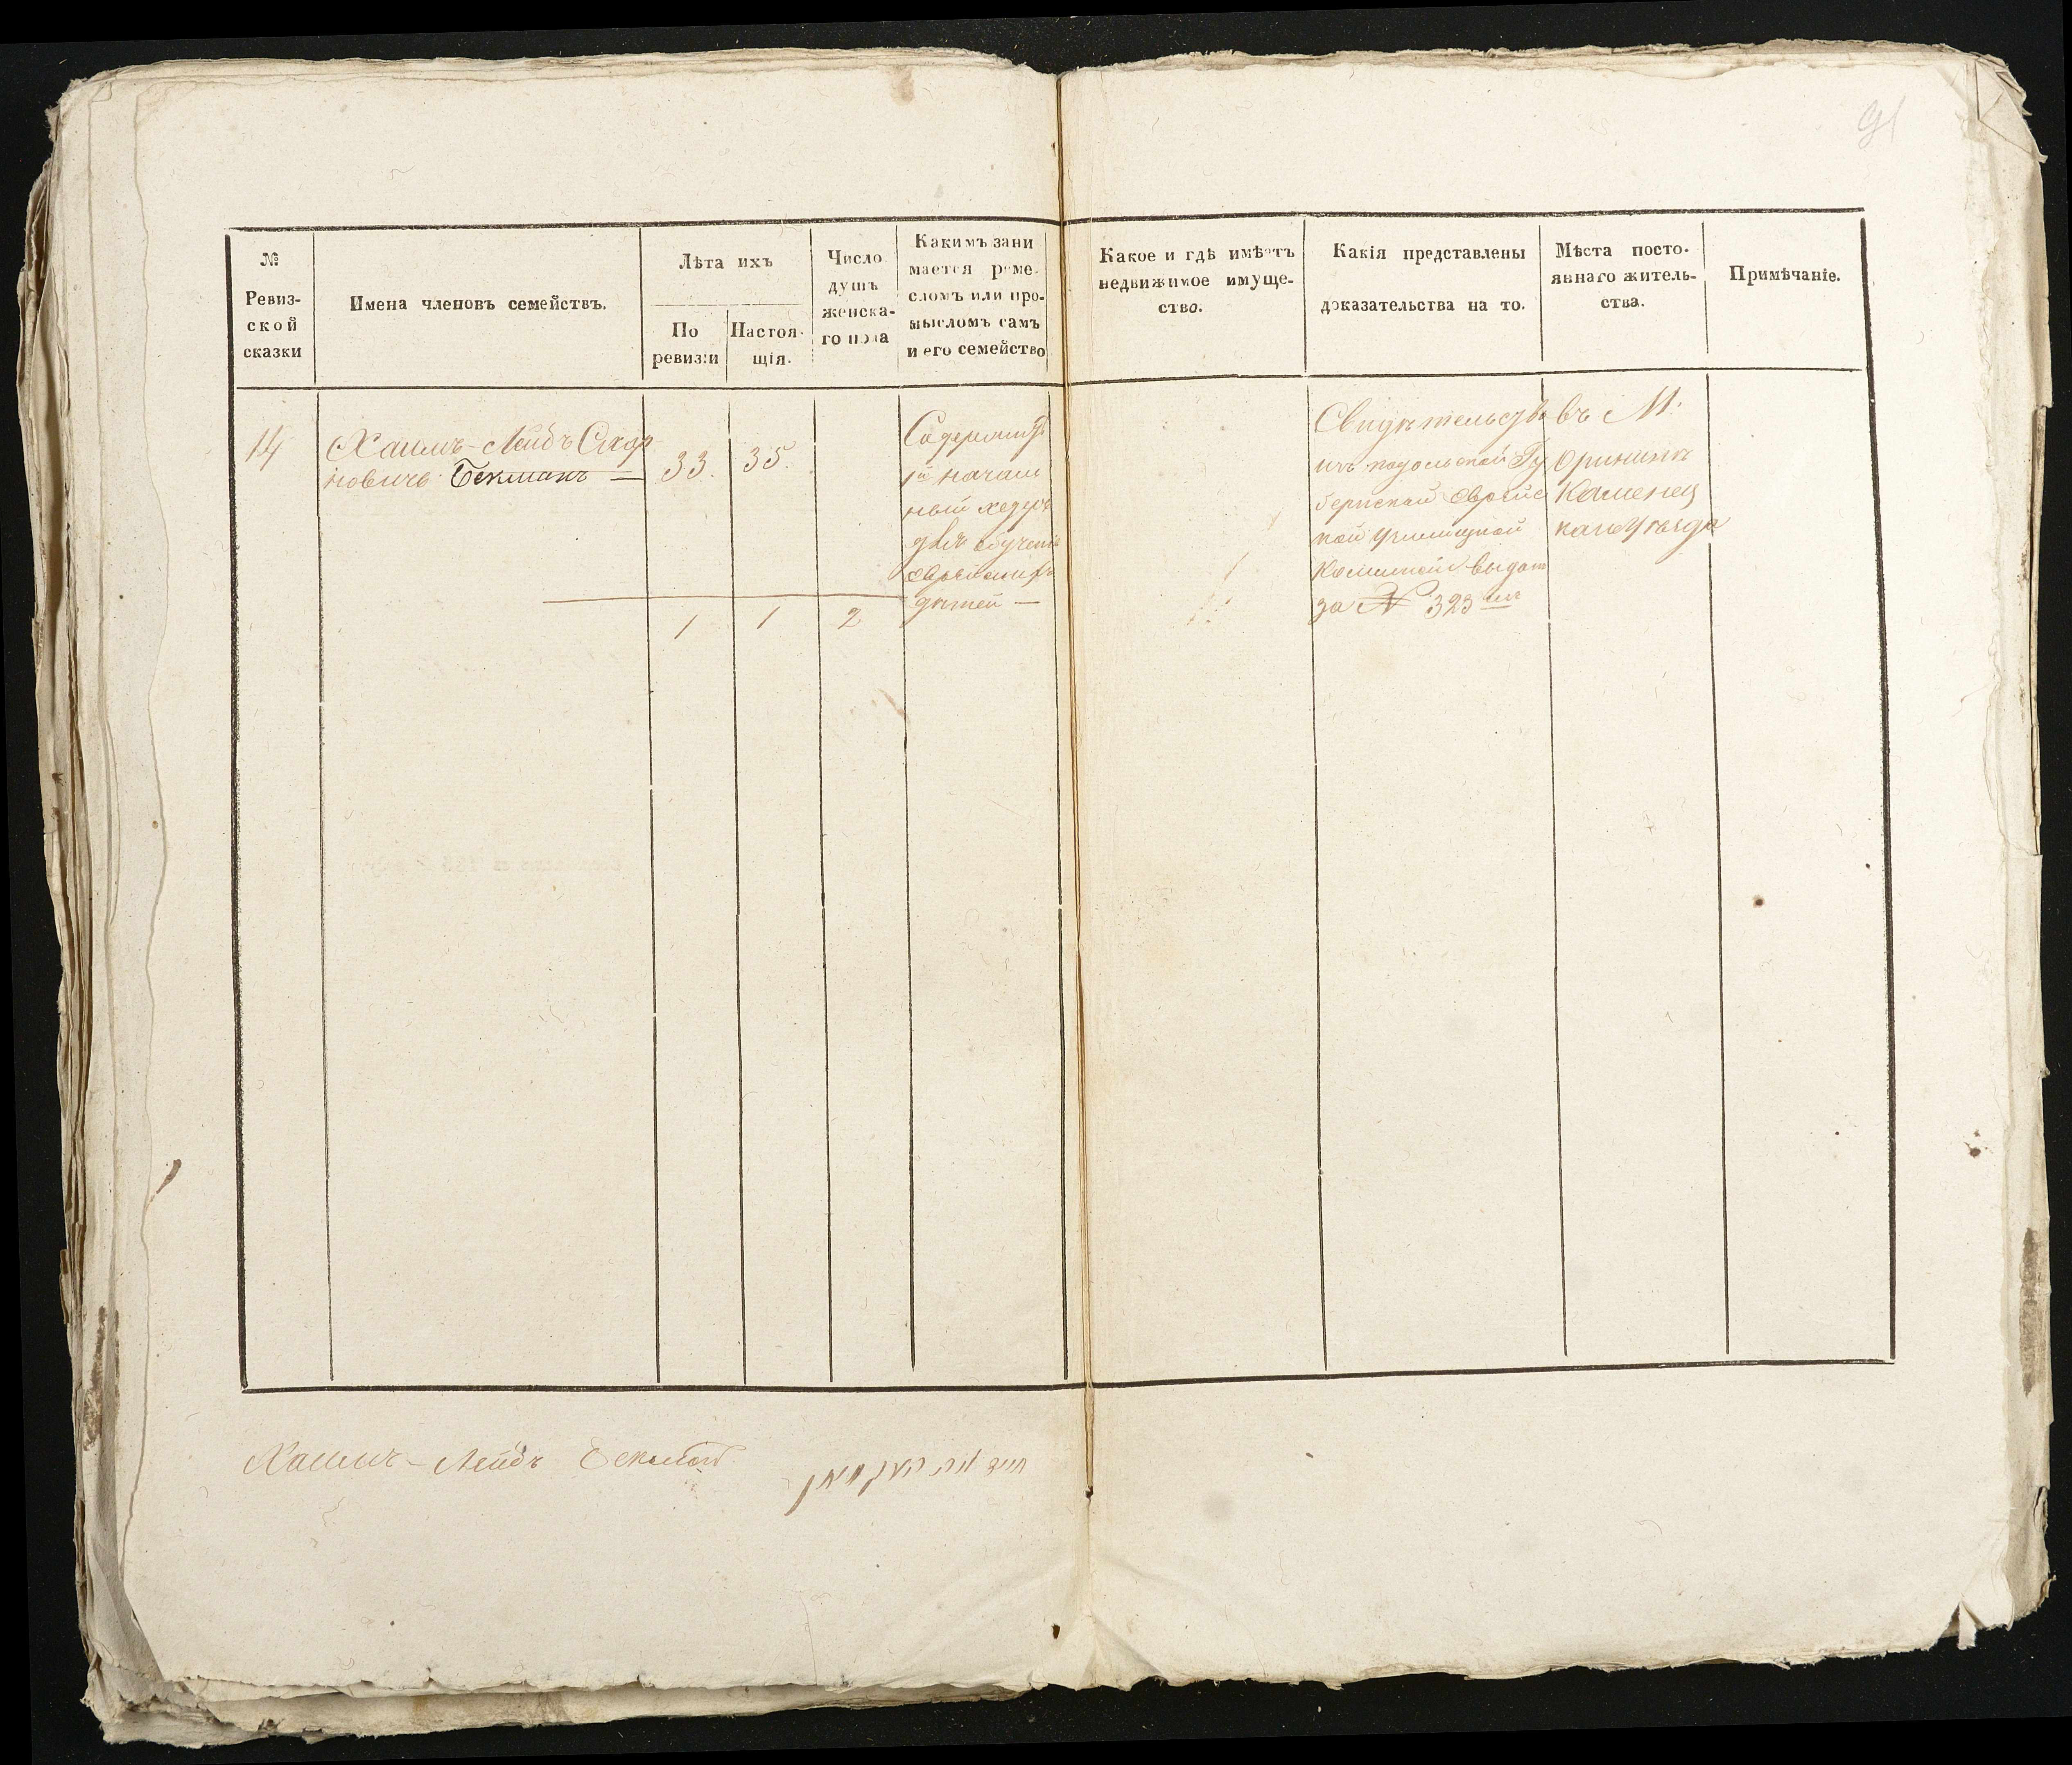 91
№
Ревиз-
ской
сказки
Имена членовъ семействъ.
Лѣта ихъ
По
ревизіи
Настоя-
щія.
Число
душъ
женска-
го пола
Какимъ зани
мается реме-
сломъ или про-
мысломъ самъ
и его семейство
Какое и гдѣ имѣетъ
недвижимое имуще-
ство.
Какія представлены
доказательства на то.
Мѣста посто-
яннаго житель-
ства.
Примѣчаніе.
14
Хаимъ-Лейбъ
новичъ Бекманъ —
33.
35.
Содержитъ
началь
ный хедеръ
для обученія
еврейскихъ
дѣтей —
Свидѣтельство
изъ подольской Гу
бернской Еврейс
кой училищной
Коммисіи выдан
за № 323
въ М:
Орининѣ
Каменец
каго уѣзда
1
1
2
Хаимъ-Лейбъ Бекманъ
חיים לייב בעקמאן